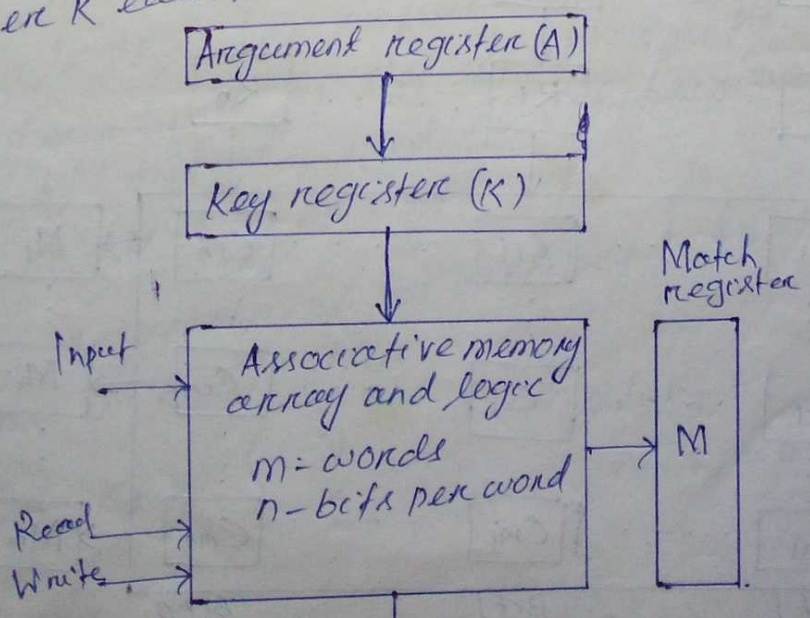 Argument register (A)
Key register (K)
Match
register
Input
Associative memory
array and logic
m = words
n - bits per word
M
Read
Write